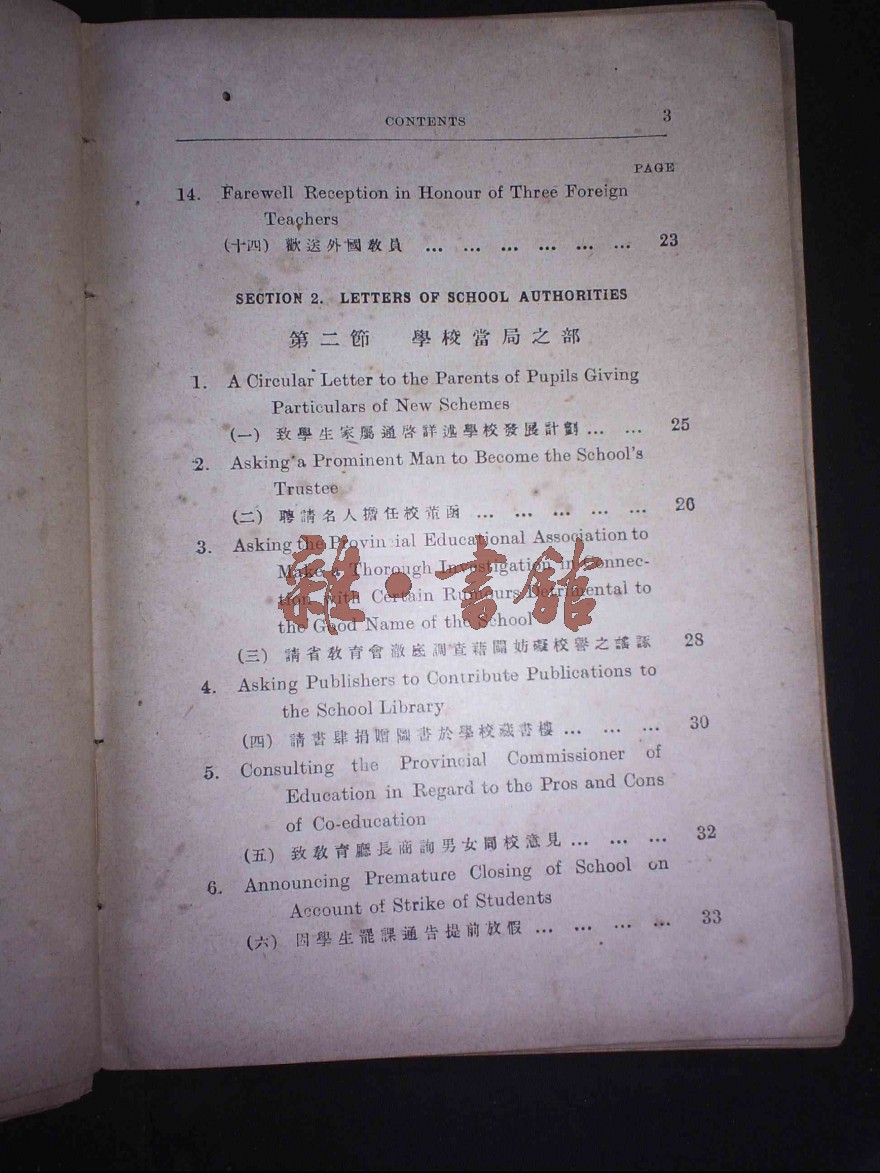 CONTENTS 3
PAGE
14. Farewell Reception in Honour of Three Foreign
Teachers
(十四) 歡送外國敎員 ... ... ... ... ... ... 23
SECTION 2. LETTERS OF SCHOOL AUTHORITIES
第二節 學校當局之部
1. A Circular Letter to the Parents of Pupils Giving
Particulars of New Schemes
(一) 致學生家屬通啓詳述學校發展計劃 ... ... 25
2. Asking a Prominent Man to Become the School's
Trustee
(二) 聘請名人擔任校董函 ... ... ... ... ... 26
3. Asking the Provincial Educational Association to
Make a Thorough Investigation in Connec-
tion with Certain Rumours Detrimental to
the Good Name of the School
(三) 請省敎育會澈底調查藉闢妨礙校譽之謠諑 28
4. Asking Publishers to Contribute Publications to
the School Library
(四) 請書肆捐贈圖書於學校藏書樓 ... ... ... 30
5. Consulting the Provincial Commissioner of
Education in Regard to the Pros and Cons
of Co-education
(五) 致敎育廳長商詢男女同校意見 ... ... ... 32
6. Announcing Premature Closing of School on
Account of Strike of Students
(六) 因學生罷課通告提前放假 ... ... ... ... 33
雜·書館